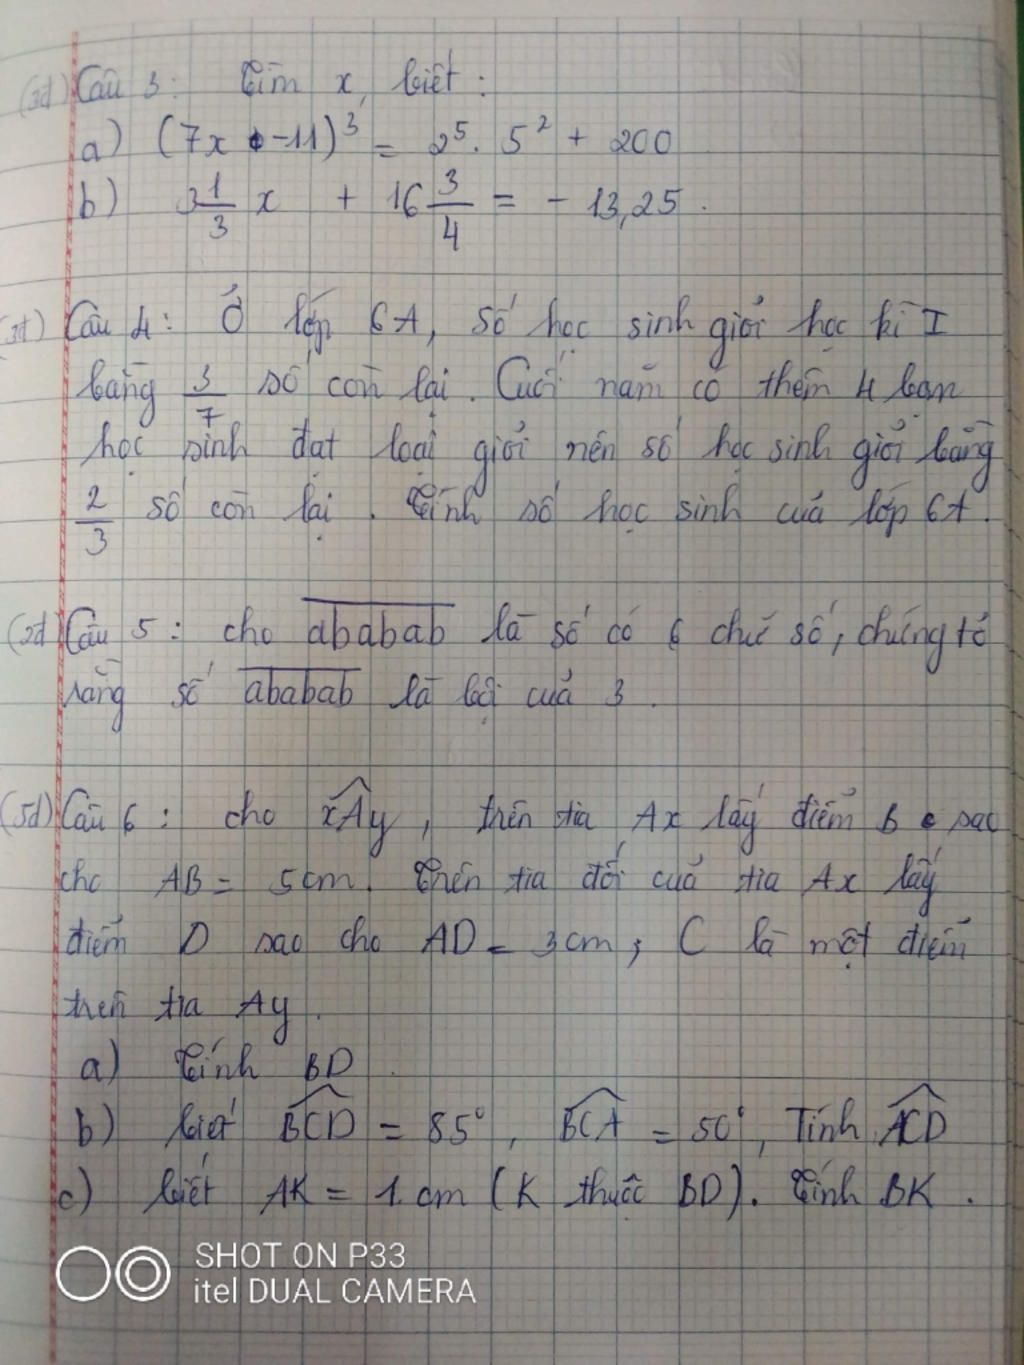 (3đ) Câu 3: Tìm x, biết:
a) (7x -11)³ = 2⁵. 5² + 200
b) 3 1/3 x + 16 3/4 = - 13,25.
(3đ) Câu 4: Ở lớp 6A, số học sinh giỏi học kì I
bằng 3/7 số còn lại. Cuối năm có thêm 4 bạn
học sinh đạt loại giỏi nên số học sinh giỏi bằng
2/3 số còn lại. Tính số học sinh của lớp 6A.
(2đ) Câu 5: cho ababab là số có 6 chữ số, chứng tỏ
rằng số ababab là bội của 3.
(5đ) Câu 6: cho xAy, trên tia Ax lấy điểm B sao
cho AB = 5cm. Trên tia đối của tia Ax lấy
điểm D sao cho AD = 3cm; C là một điểm
trên tia Ay.
a) Tính BD.
b) biết BCD = 85°, BCA = 50°, Tính ACD
c) biết AK = 1 cm (K thuộc BD). Tính BK.
SHOT ON P33
itel DUAL CAMERA